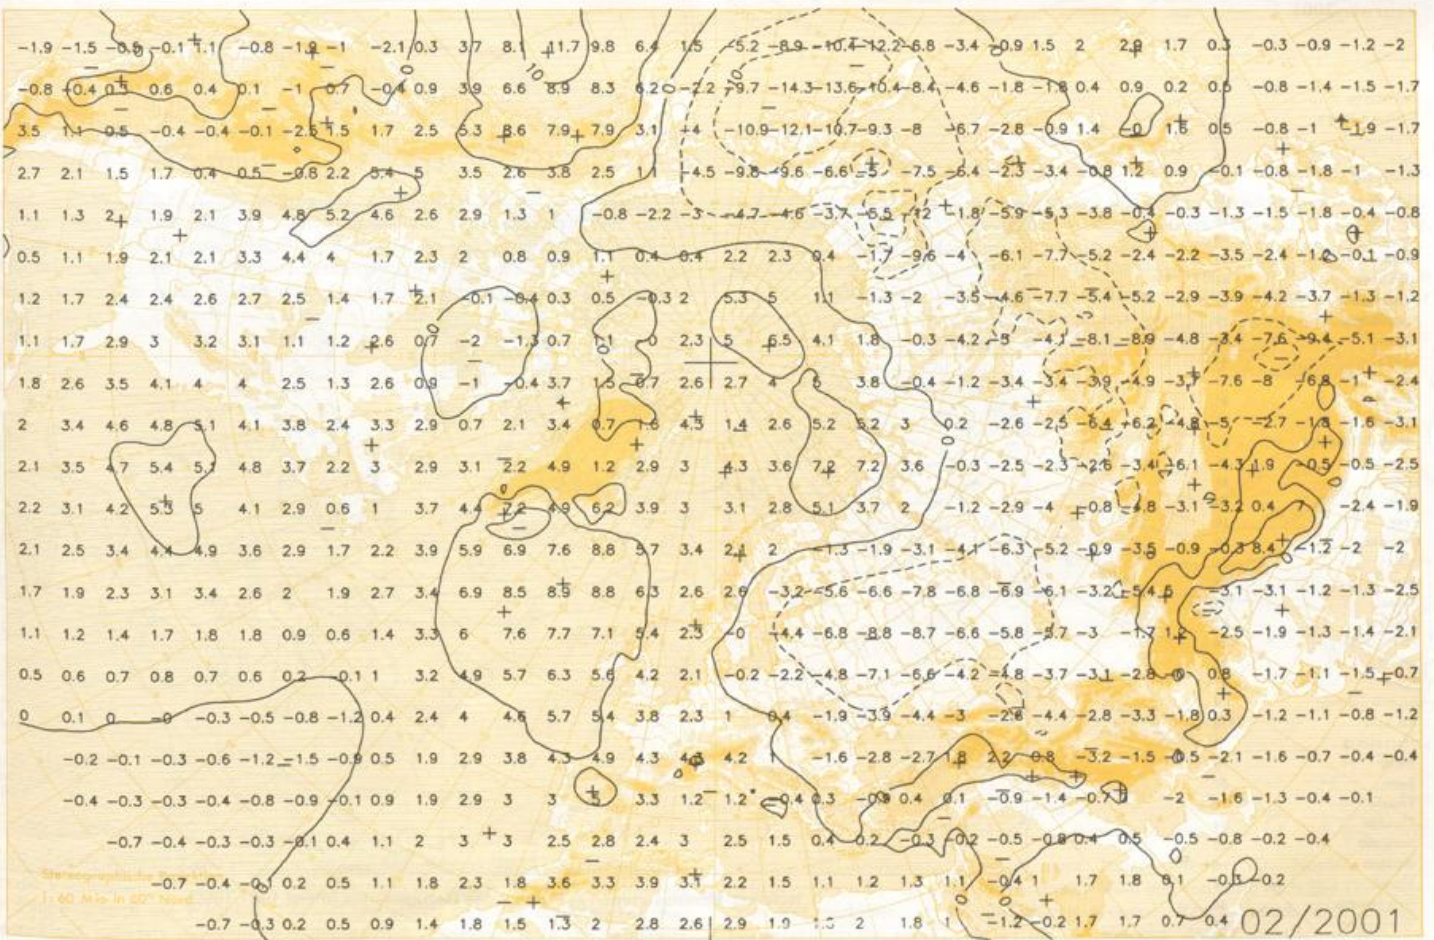 -1.9 -1.5 -0.5 -0.1 1.1 -0.8 -1.9 -1 -2.1 0.3 3.7 8.1 11.7 9.8 6.4 1.5 -5.2 -8.9 -10.4 -12.2 -6.8 -3.4 -0.9 1.5 2 2.9 1.7 0.3 -0.3 -0.9 -1.2 -2
-0.8 -0.4 0.3 0.6 0.4 0.1 -1 0.7 -0.4 0.9 3.9 6.6 8.9 8.3 6.2 -2.2 -9.7 -14.3 -13.6 -10.4 -8.4 -4.6 -1.8 -1.8 0.4 0.9 0.2 0.5 -0.8 -1.4 -1.5 -1.7
3.5 1.1 0.5 -0.4 -0.4 -0.1 -2.5 1.5 1.7 2.5 5.3 8.6 7.9 7.9 3.1 -4 -10.9 -12.1 -10.7 -9.3 -8 -6.7 -2.8 -0.9 1.4 -0 1.6 0.5 -0.8 -1 -1.9 -1.7
2.7 2.1 1.5 1.7 0.4 0.5 -0.8 2.2 5.4 5 3.5 2.6 3.8 2.5 1.1 -4.5 -9.8 -9.6 -6.6 -5 -7.5 -6.4 -2.3 -3.4 -0.8 1.2 0.9 -0.1 -0.8 -1.8 -1 -1.3
1.1 1.3 2 1.9 2.1 3.9 4.8 5.2 4.6 2.6 2.9 1.3 1 -0.8 -2.2 -3 -4.7 -4.6 -3.7 -5.5 -12 -1.8 -5.9 -5.3 -3.8 -0.4 -0.3 -1.3 -1.5 -1.8 -0.4 -0.8
0.5 1.1 1.9 2.1 2.1 3.3 4.4 4 1.7 2.3 2 0.8 0.9 1.1 0.4 0.4 2.2 2.3 0.4 -1.7 -9.6 -4 -6.1 -7.7 -5.2 -2.4 -2.2 -3.5 -2.4 -1.2 -0.1 -0.9
1.2 1.7 2.4 2.4 2.6 2.7 2.5 1.4 1.7 2.1 -0.1 -0.4 0.3 0.5 -0.3 2 5.3 5 1.1 -1.3 -2 -3.5 -4.6 -7.7 -5.4 -5.2 -2.9 -3.9 -4.2 -3.7 -1.3 -1.2
1.1 1.7 2.9 3 3.2 3.1 1.1 1.2 2.6 0.7 -2 -1.3 0.7 1.1 -0 2.3 5 6.5 4.1 1.8 -0.3 -4.2 -5 -4.1 -8.1 -8.9 -4.8 -3.4 -7.6 -9.4 -5.1 -3.1
1.8 2.6 3.5 4.1 4 4 2.5 1.3 2.6 0.9 -1 -0.4 3.7 1.5 0.7 2.6 2.7 4 5 3.8 -0.4 -1.2 -3.4 -3.4 -3.9 -4.9 -3.7 -7.6 -8 -6.8 -1 -2.4
2 3.4 4.6 4.8 5.1 4.1 3.8 2.4 3.3 2.9 0.7 2.1 3.4 0.7 1.6 4.5 1.4 2.6 5.2 5.2 3 0.2 -2.6 -2.5 -6.4 -6.2 -4.8 -5 -2.7 -1.8 -1.6 -3.1
2.1 3.5 4.7 5.4 5.1 4.8 3.7 2.2 3 2.9 3.1 2.2 4.9 1.2 2.9 3 4.3 3.6 7.2 7.2 3.6 -0.3 -2.5 -2.3 -2.6 -3.4 -6.1 -4.3 1.9 -0.5 -0.5 -2.5
2.2 3.1 4.2 5.3 5 4.1 2.9 0.6 1 3.7 4.4 7.2 4.9 6.2 3.9 3 3.1 2.8 5.1 3.7 2 -1.2 -2.9 -4 -0.8 -4.8 -3.1 -3.2 0.4 7 -2.4 -1.9
2.1 2.5 3.4 4.4 4.9 3.6 2.9 1.7 2.2 3.9 5.9 6.9 7.6 8.8 5.7 3.4 2.1 2 -1.3 -1.9 -3.1 -4.1 -6.3 -5.2 -0.9 -3.5 -0.9 -0.3 8.4 -1.2 -2 -2
1.7 1.9 2.3 3.1 3.4 2.6 2 1.9 2.7 3.4 6.9 8.5 8.9 8.8 6.3 2.6 2.6 -3.2 -5.6 -6.6 -7.8 -6.8 -6.9 -6.1 -3.2 -5.4 5 -3.1 -3.1 -1.2 -1.3 -2.5
1.1 1.2 1.4 1.7 1.8 1.8 0.9 0.6 1.4 3.3 6 7.6 7.7 7.1 5.4 2.3 -0 -4.4 -6.8 -8.8 -8.7 -6.6 -5.8 -5.7 -3 -1.7 1.2 -2.5 -1.9 -1.3 -1.4 -2.1
0.5 0.6 0.7 0.8 0.7 0.6 0.2 -0.1 1 3.2 4.9 5.7 6.3 5.6 4.2 2.1 -0.2 -2.2 -4.8 -7.1 -6.6 -4.2 -4.8 -3.7 -3.1 -2.8 -0 0.8 -1.7 -1.1 -1.5 -0.7
0 0.1 0 -0 -0.3 -0.5 -0.8 -1.2 0.4 2.4 4 4.6 5.7 5.4 3.8 2.3 1 0.4 -1.9 -3.9 -4.4 -3 -2.6 -4.4 -2.8 -3.3 -1.8 0.3 -1.2 -1.1 -0.8 -1.2
-0.2 -0.1 -0.3 -0.6 -1.2 -1.5 -0.9 0.5 1.9 2.9 3.8 4.3 4.9 4.3 4.3 4.2 1 -1.6 -2.8 -2.7 1.8 2.2 0.8 -3.2 -1.5 -0.5 -2.1 -1.6 -0.7 -0.4 -0.4
-0.4 -0.3 -0.3 -0.4 -0.8 -0.9 -0.1 0.9 1.9 2.9 3 3 5 3.3 1.2 1.2 -0.4 0.3 -0.9 0.4 0.1 -0.9 -1.4 -0.7 -2 -1.6 -1.3 -0.4 -0.1
-0.7 -0.4 -0.3 -0.3 -0.1 0.4 1.1 2 3 3 2.5 2.8 2.4 3 2.5 1.5 0.4 0.2 -0.3 -0.2 -0.5 -0.8 0.4 0.5 -0.5 -0.8 -0.2 -0.4
-0.7 -0.4 -0.1 0.2 0.5 1.1 1.8 2.3 1.8 3.6 3.3 3.9 3.1 2.2 1.5 1.1 1.2 1.3 1.1 -0.4 1 1.7 1.8 0.1 -0.3 -0.2
-0.7 -0.3 0.2 0.5 0.9 1.4 1.8 1.5 1.3 2 2.8 2.6 2.9 1.9 1.8 1 -1.2 -0.2 1.7 1.7 0.7 0.4 02/2001